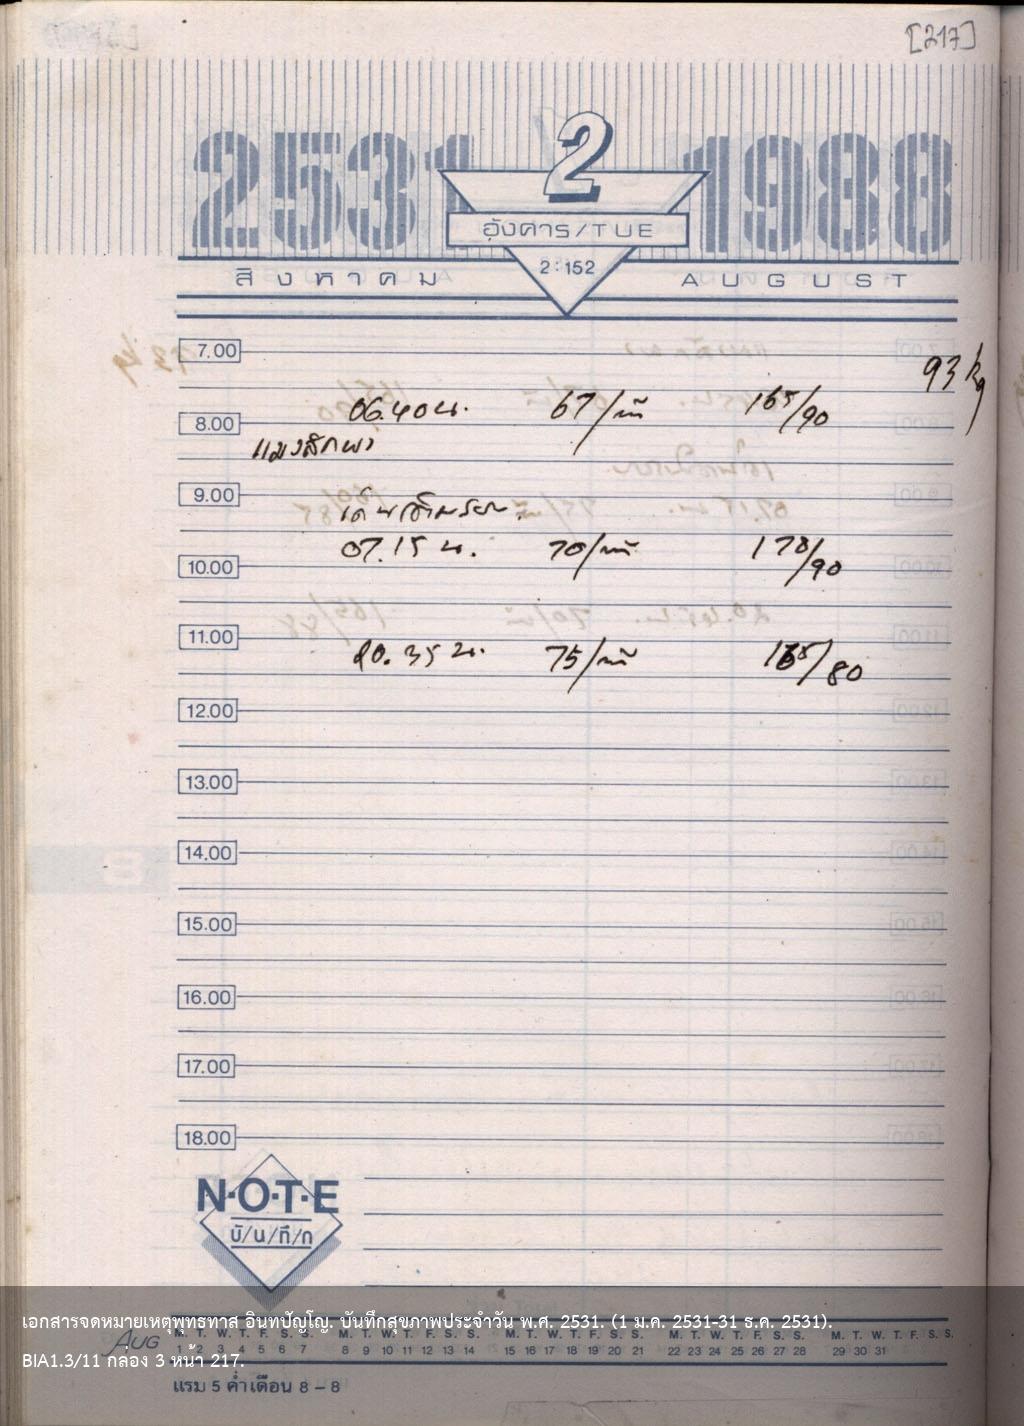 [217]
2531 2 1988
อังคาร/TUE
สิงหาคม 2:152 AUGUST
7.00
93 kg
06.40 น. 67/นาที 165/90
8.00
แมงลักผง
9.00
07.15 น. 70/นาที 178/90
10.00
11.00
20.35 น. 75/นาที 165/80
12.00
13.00
14.00
15.00
16.00
17.00
18.00
N·O·T·E
บั/น/ทึ/ก
เอกสารจดหมายเหตุพุทธทาส อินทปัญโญ. บันทึกสุขภาพประจำวัน พ.ศ. 2531. (1 ม.ค. 2531-31 ธ.ค. 2531).
AUG M. T. W. T. F. S. S. M. T. W. T. F. S. S. M. T. W. T. F. S. S. M. T. W. T. F. S. S. M. T. W. T. F. S. S.
1 2 3 4 5 6 7 8 9 10 11 12 13 14 15 16 17 18 19 20 21 22 23 24 25 26 27 28 29 30 31
BIA1.3/11 กล่อง 3 หน้า 217.
แรม 5 ค่ำเดือน 8 – 8